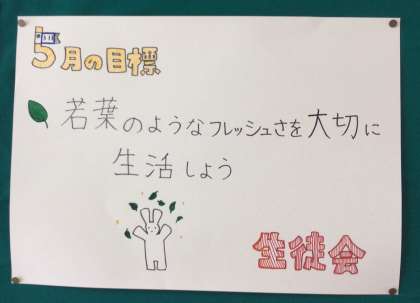 5月の目標
若葉のようなフレッシュさを大切に
生活しよう
生徒会